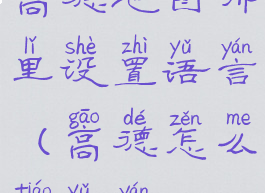 高德地图哪
lǐ shè zhì yǔ yán
里设置语言
gāo dé zěn me
（高德怎么
tiáo yǔ yán